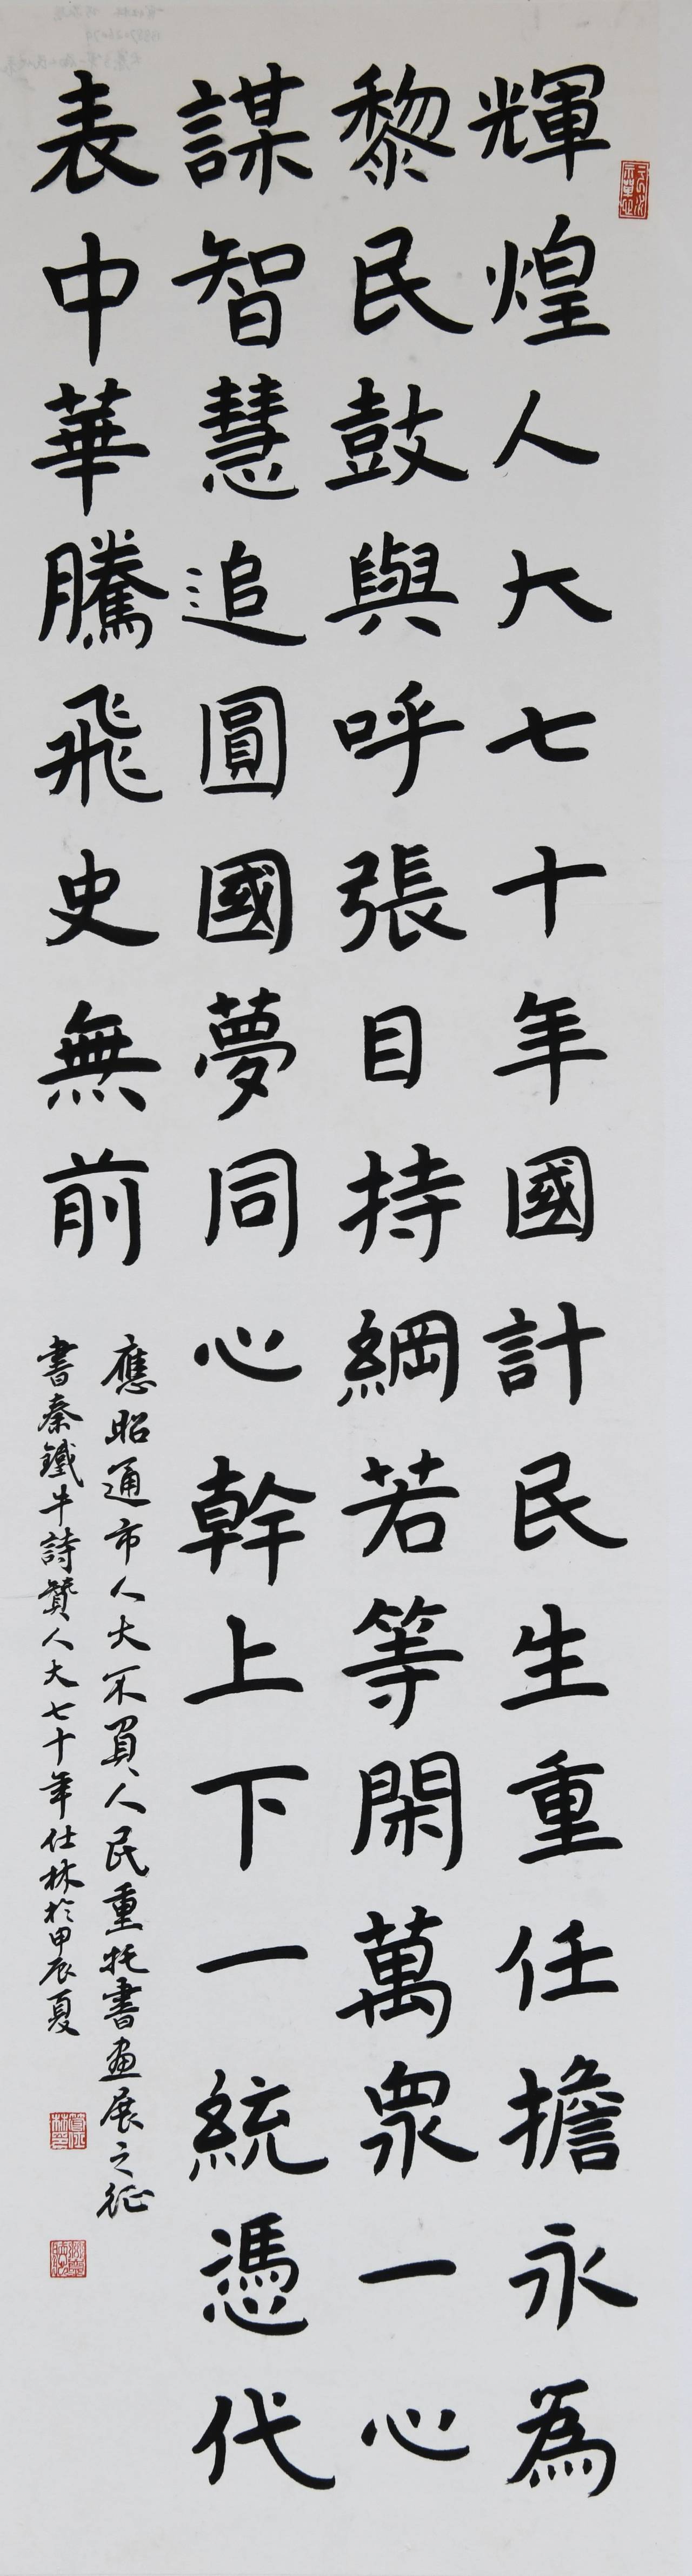 輝煌人大七十年國計民生重任擔永為
黎民鼓與呼張目持綱若等閑萬眾一心
謀智慧追圓國夢同心幹上下一統憑代
表中華騰飛史無前
應昭通市人大不負人民重托書畫展之征
書秦鐵牛詩贊人大七十年仕林於甲辰夏